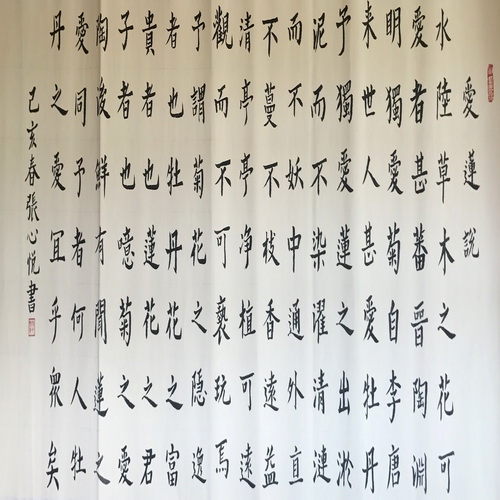 愛蓮說
水陸草木之花可
愛者甚蕃晉陶淵
明獨愛菊自李唐
来世人甚愛牡丹
予獨愛蓮之出淤
泥而不染濯清漣
而不妖中通外直
不蔓不枝香遠益
清亭亭净植可遠
觀而不可褻玩焉
予謂菊花之隱逸
者也牡丹花之富
貴者也蓮花之君
子者也噫菊之愛
陶後鮮有聞蓮之
愛同予者何人牡
丹之愛宜乎眾矣
己亥春張心悦書